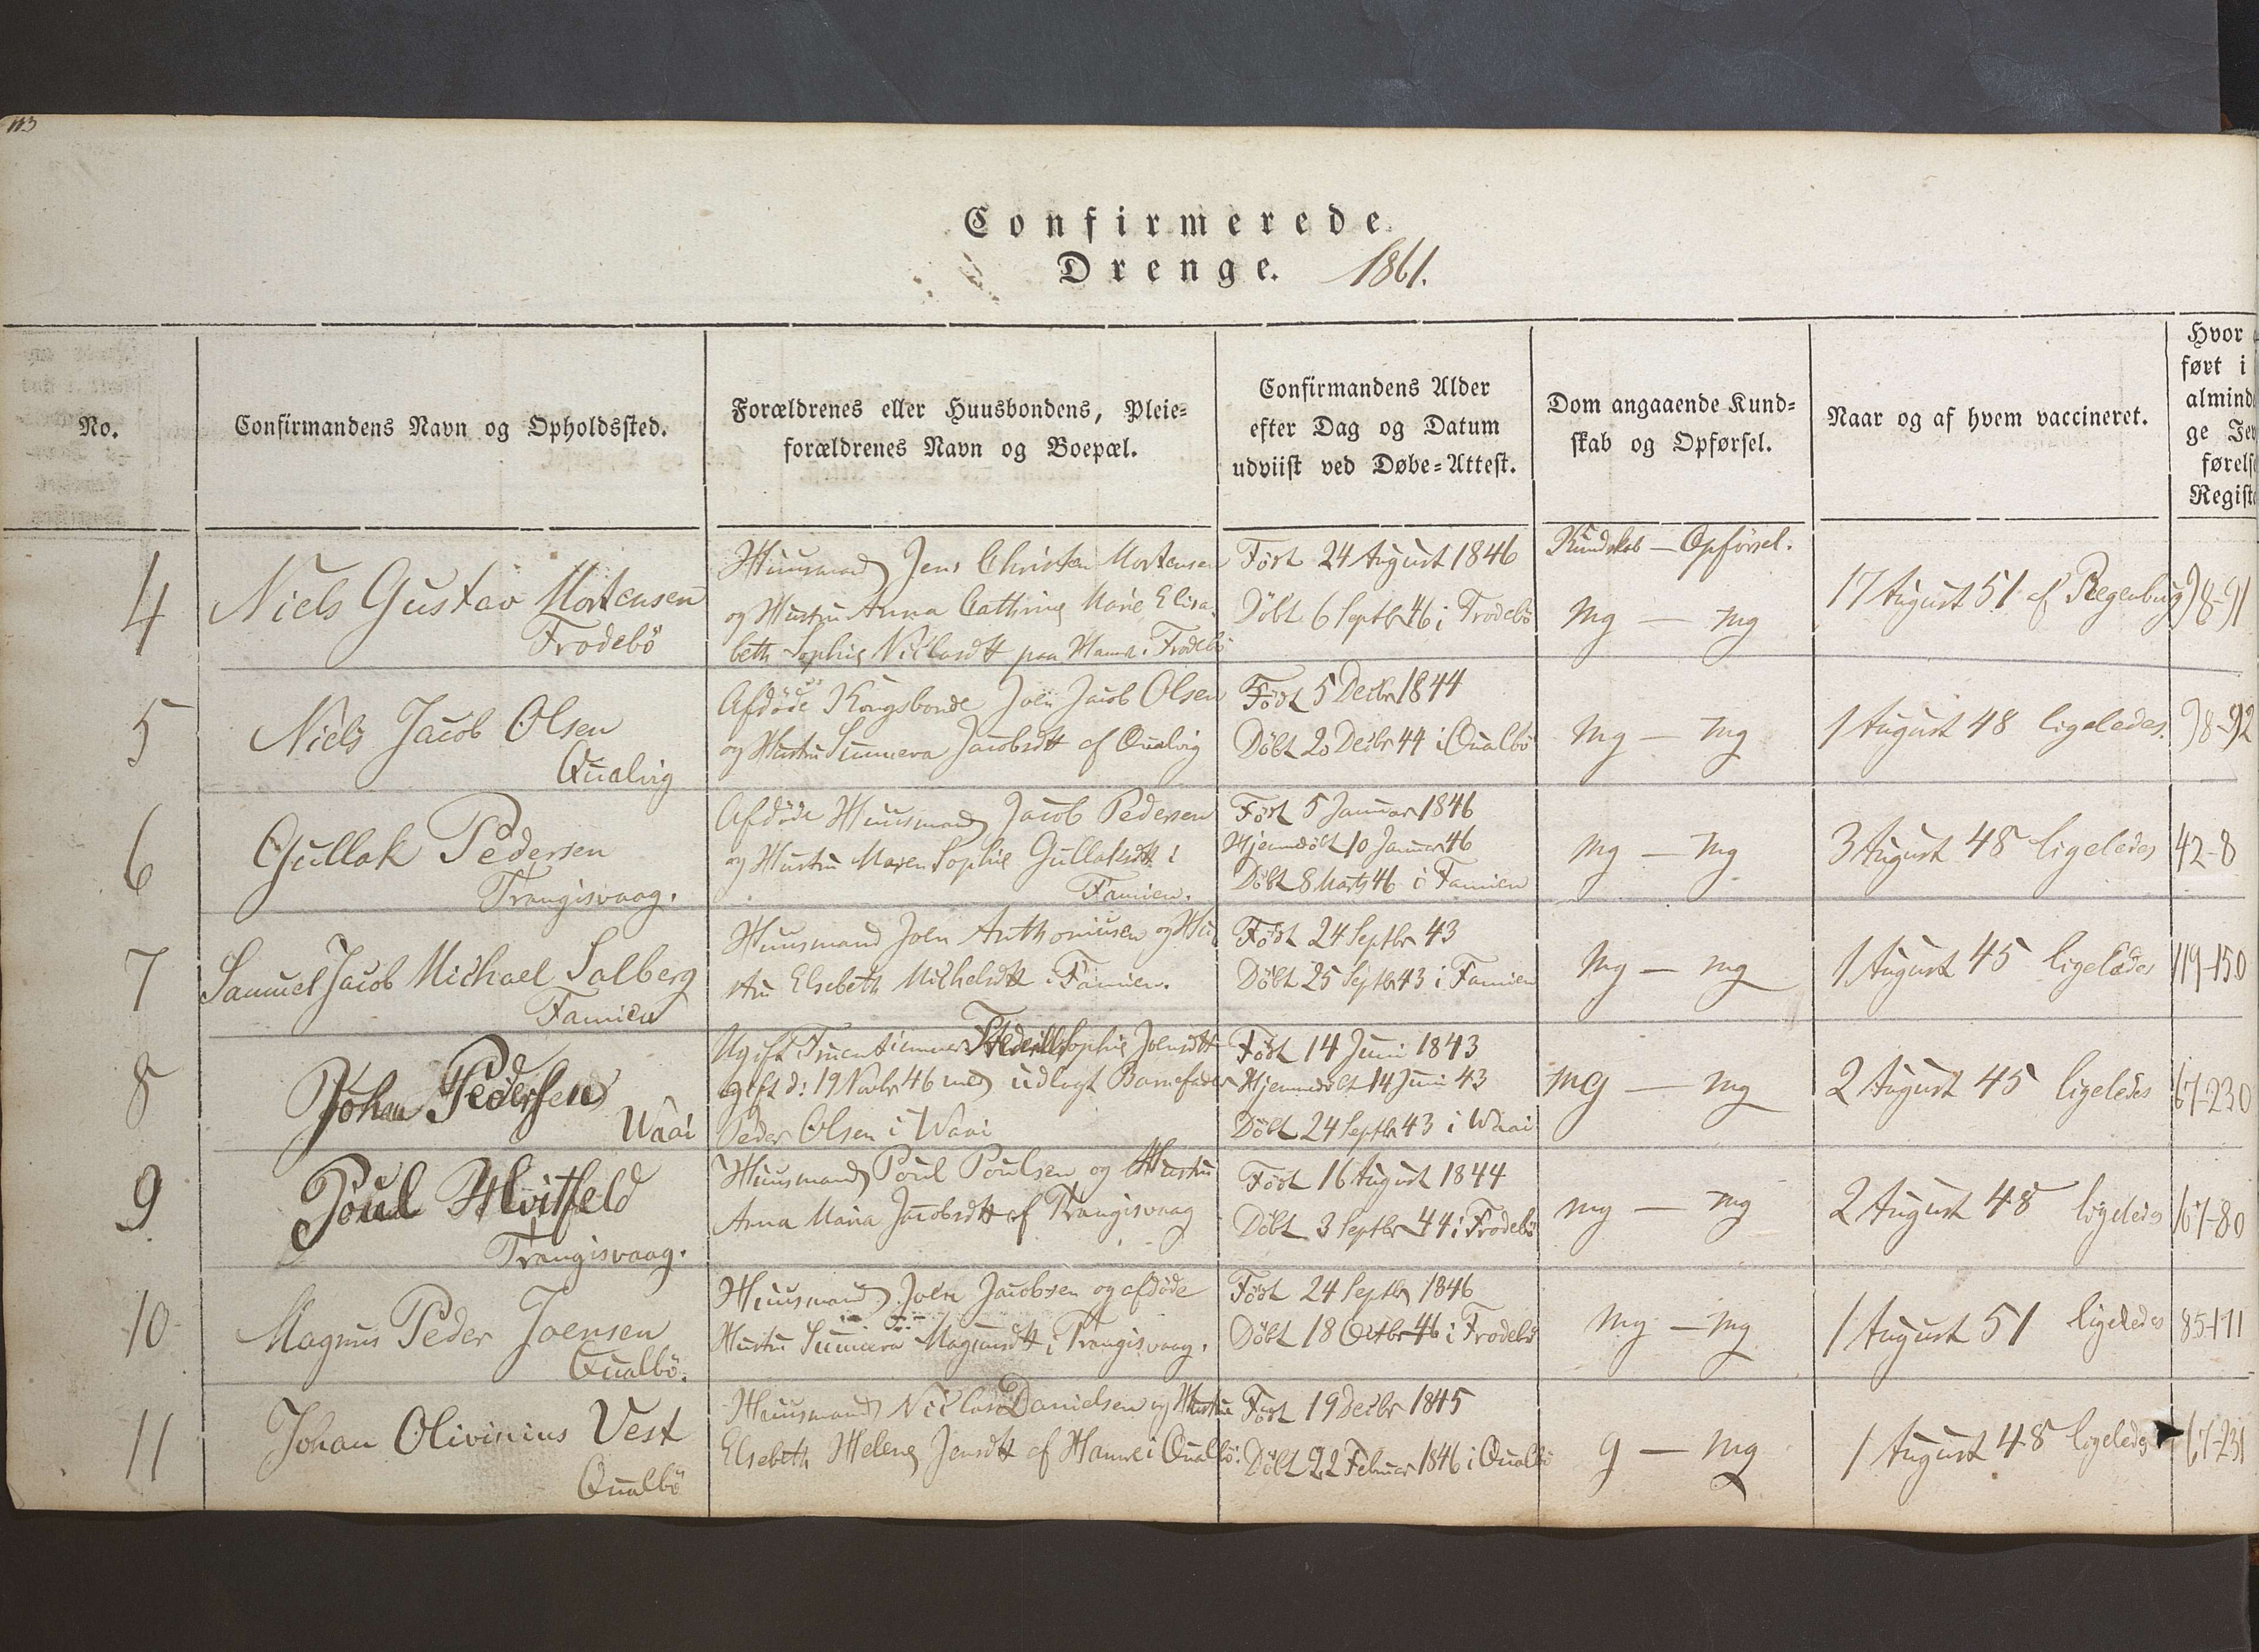 113
Confirmerede
Drenge. 1861.
No.
Confirmandens Navn og Opholdssted.
Forældrenes eller Huusbondens, Pleie-
forældrenes Navn og Boepæl.
Confirmandens Alder
efter Dag og Datum
udviist ved Døbe-Attest.
Dom angaaende Kund-
skab og Opførsel.
Naar og af hvem vaccineret.
Hvor
ført i
almind
ge Jev
førelse
Registe
Kundskab — Opförsel.
4
Niels Gustav Mortensen
Frodebö
Huusmand Jens Christian Mortensen
og Hustru Anna Cathrine Marie Elisa-
beth Sophie Niclasdtt paa Hamre i Frodebö
Föd 24 August 1846
Döbt 6 Septbr 46 i Frodebö
mg — mg
17 August 51 af Regenburg
98-91
5
Niels Jacob Olsen
Qualvig
Afdöde Kongsbonde Joen Jacob Olsen
og Hustru Sunneva Jacobsdtt af Qualvig
Föd 5 Decbr 1844
Döbt 20 Decbr 44 i Qualbö
mg — mg
1 August 48 ligeledes.
98-92
6
Gullak Pedersen
Trangisvaag.
Afdöde Huusmand Jacob Pedersen
og Hustru Maren Sophie Gullaksdtt i
Famien.
Föd 5 Januar 1846
Hjemmedöbt 10 Januar 46
Döbt 8 Marts 46 i Famien
mg — mg
3 August 48 ligeledes
42-8
7
Samuel Jacob Michael Salberg
Famien
Huusmand Joen Anthoniusen og Hu
stru Elsebeth Michelsdtt i Famien.
Föd 24 Septbr 43
Döbt 25 Septbr 43 i Famien
mg — mg
1 August 45 ligeledes
119-150
8
Johan Pedersen
Waai
Ugift Fruentimmer Sophie Joensdtt
gift d: 19 Novbr 46 med udlagt Barnefader
Peder Olsen i Waai
Föd 14 Juni 1843
Hjemmedöbt 14 Juni 43
Döbt 24 Septbr 43 i Waai
mg — mg
2 August 45 ligeledes
67-230
9
Poul Hvitfeld
Trangisvaag.
Huusmand Poul Poulsen og Hustru
Anna Maria Jacobsdtt af Trangisvaag
Föd 16 August 1844
Döbt 3 Septbr 44 i Frodebö
mg — mg
2 August 48 ligeledes
67-80
10
Magnus Peder Joensen
Qualbö.
Huusmand Joen Jacobsen og afdöde
Hustru Sunneva Magnusdtt i Trangisvaag.
Föd 24 Septbr 1846
Döbt 18 Octbr 46 i Frodebö
mg — mg
1 August 51 ligeledes
85-171
11
Johan Olivinius Vest
Qualbö
Huusmand Niclas Danielsen og Hustru
Elsebeth Helene Jensdtt af Hamre i Qualbö.
Föd 19 Decbr 1845
Döbt 22 Februar 1846 i Qualbö
g — mg
1 August 48 ligeledes
67-231